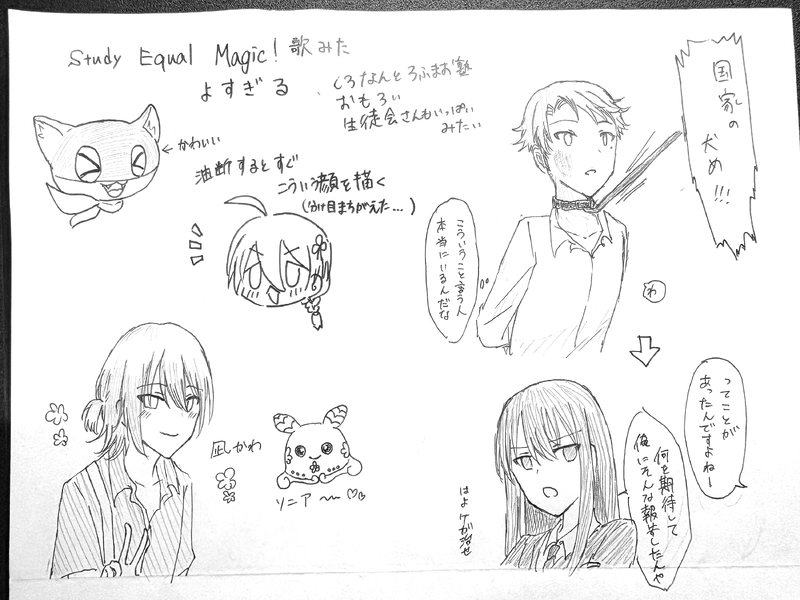 Study Equal Magic! 歌みた
よすぎる
くろなんとろふまお塾
おもろい
生徒会さんもいっぱい
みたい
←かわいい
油断するとすぐ
こういう顔を描く
(分け目まちがえた…)
国家の
犬め!!!
こういうこと言う人
本当にいるんだな
わ
ってことが
あったんですよねー
何を期待して
俺にそんな報告したんや
はよケガ治せ
凪かわ
ソニア〜〜♡